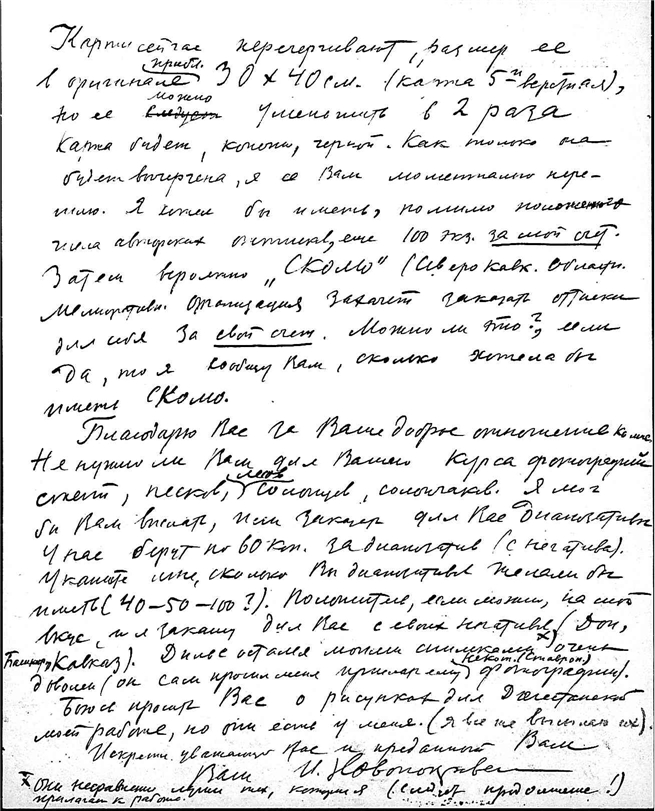 Карты сейчас перечерчивают, размер ее
в оригинале прибл. 30 х 40 см. (карта 5-и верстная),
но ее можно уменьшить в 2 раза
Карта будет, конечно, черной. Как только она
будет вычерчена, я ее Вам моментально пере-
шлю. Я хотел бы иметь, помимо положенного
числа авторских оттисков, еще 100 экз. за мой счет.
Затем вероятно "СКОМО" (Северокавк. Областн.
Мелиоративн. Организация захочет заказать оттиски
для себя за свой счет. Можно ли это?, если
Да, то я сообщу Вам, сколько хотела бы
иметь СКОМО.
Благодарю Вас за Ваше доброе отношение ко мне.
Не нужно ли Вам для Вашего курса фотографий
степей, песков, лесов, солонцов, солончаков. Я мог
бы Вам выслать, или заказать для Вас диапозитивы
У нас берут по 60 коп. за диапозитив (с негатива).
Укажите мне, сколько Вы диапозитивов желали бы
иметь (40-50-100?). Положитесь, если можно, на мой
вкус, и я закажу для Вас с своих негативов (Дон,
Кавказ). остался моими снимками х) очень
доволен (он сам просил меня прислать ему некот. (Ставроп.) фотографии).
Боюсь просить Вас о рисунках для Дагестанской
моей работы, но они есть у меня. (Я все же высылаю их).
Искренно уважающий Вас и преданный Вам
Ваш И. Новопокровский
х Они несравненно лучше тех, которые (следует продолжение!)
прилагает к работе.